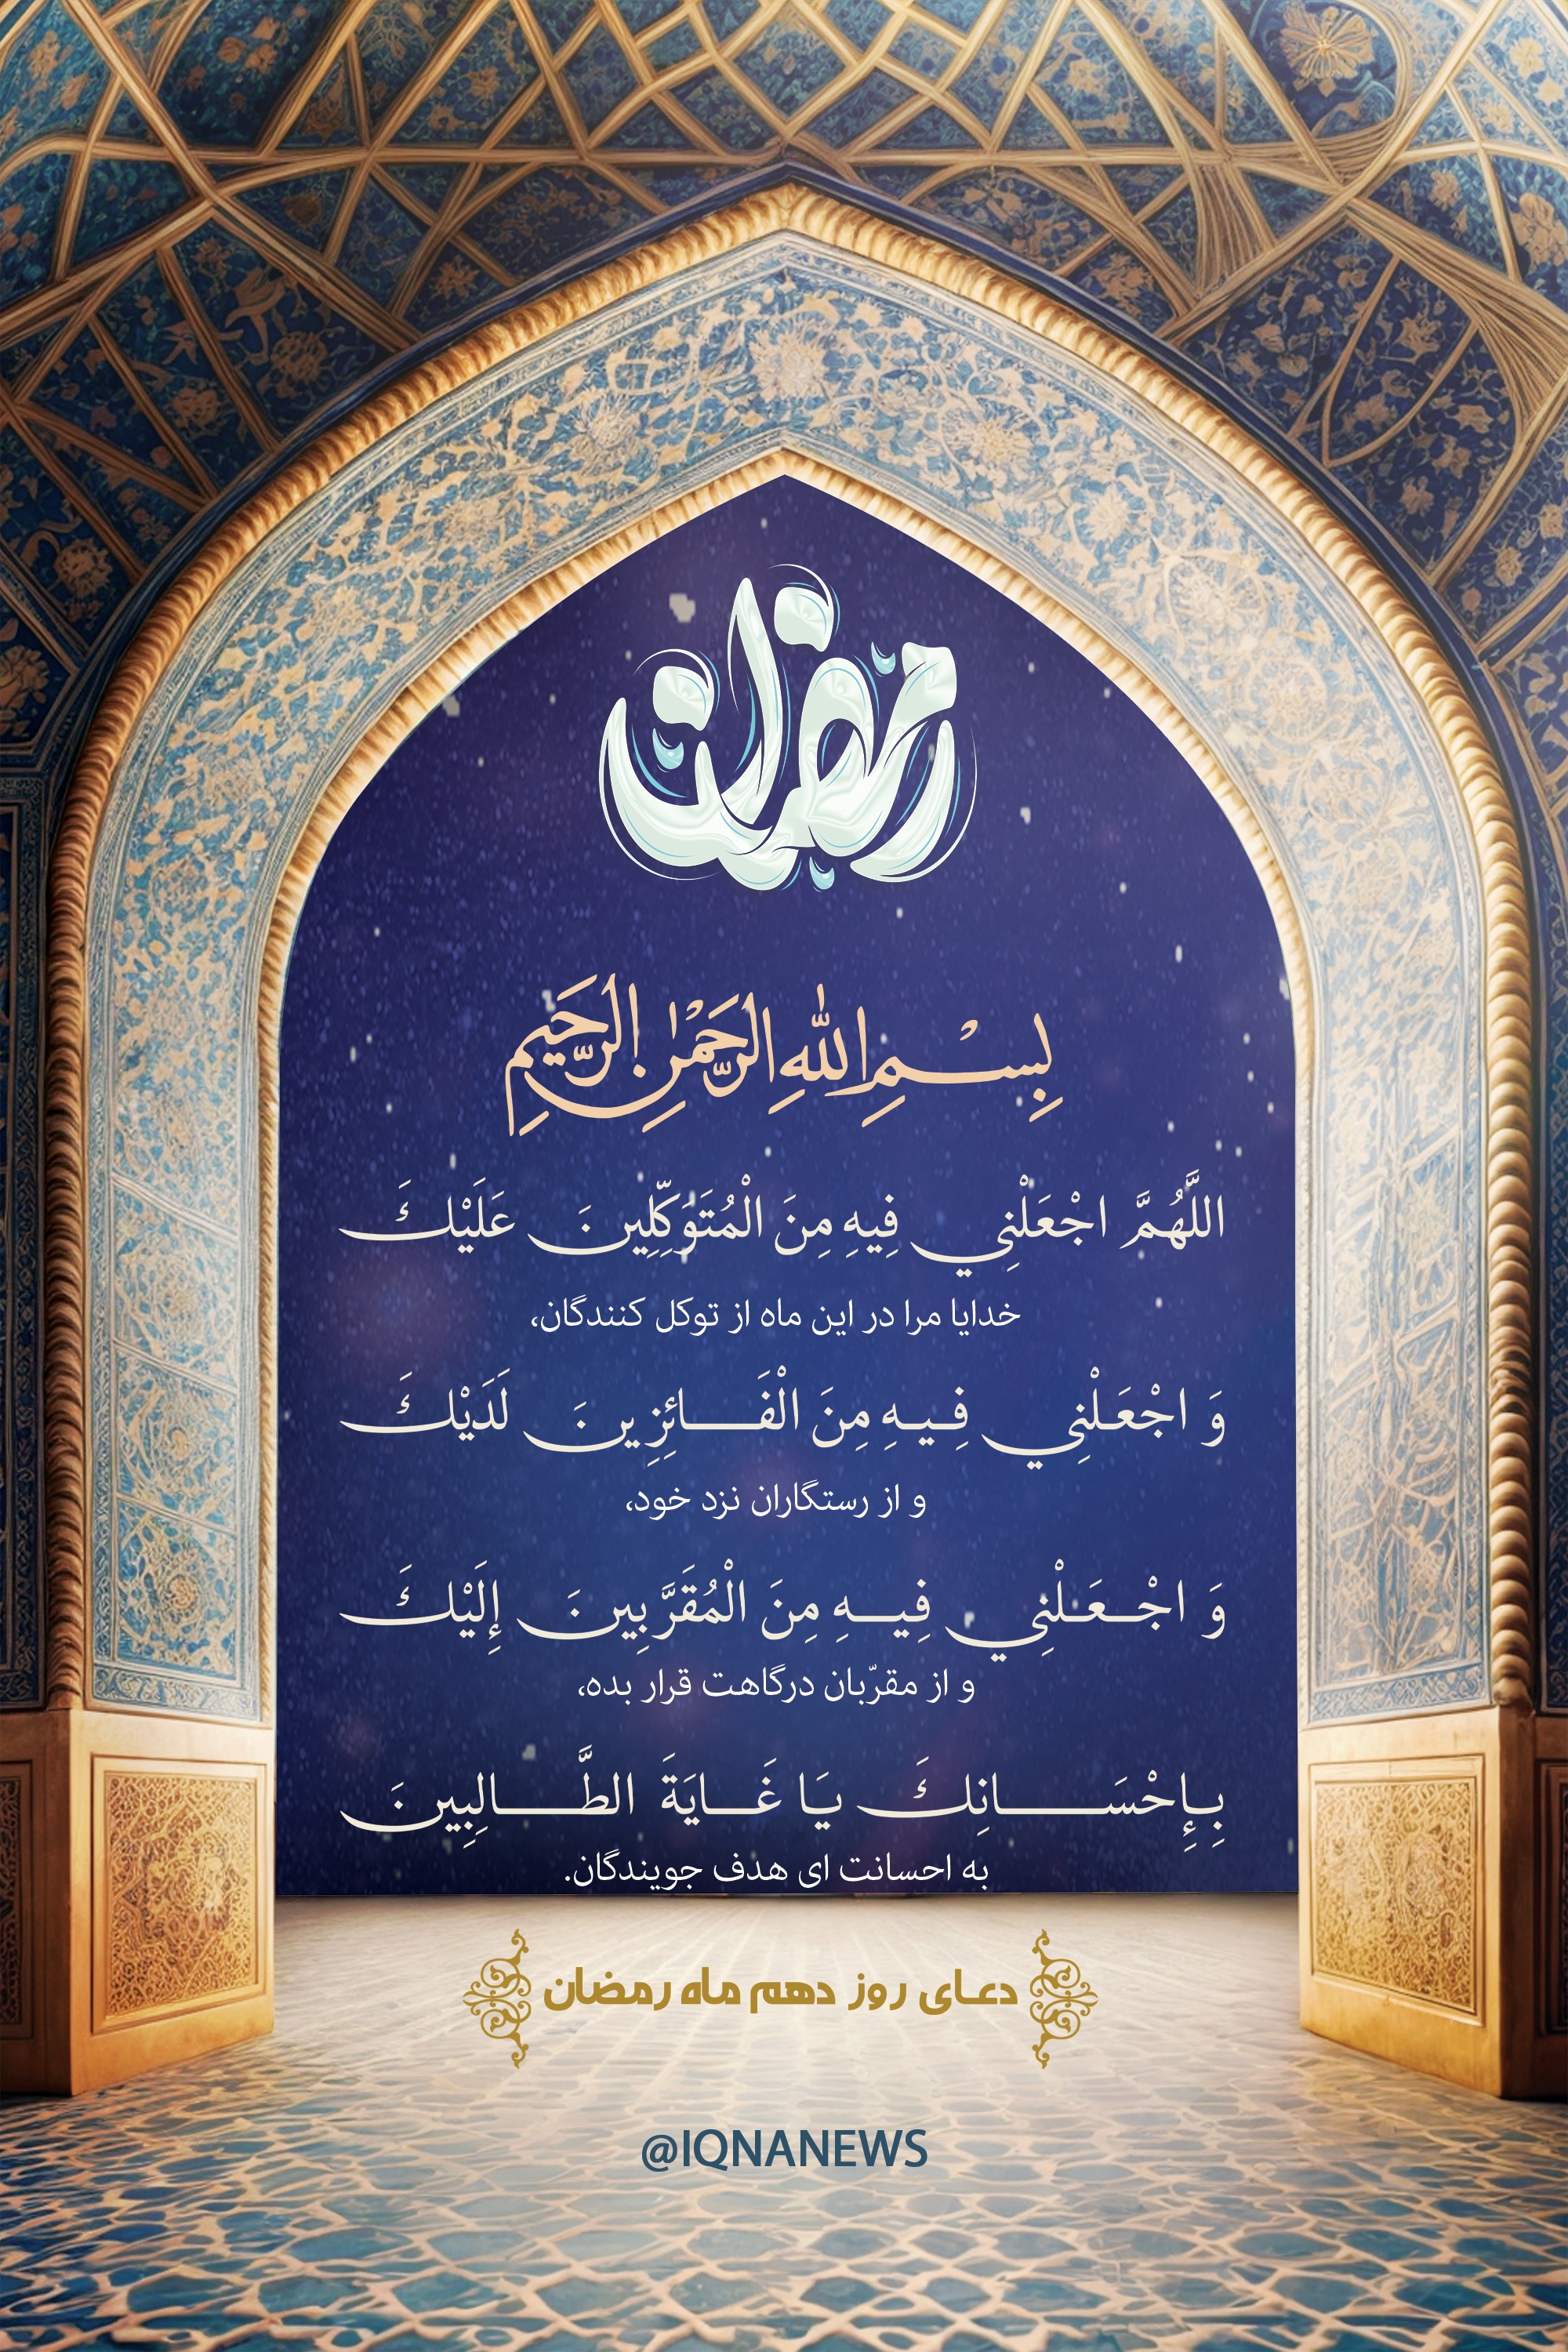 رمضان
بِسْمِ اللهِ الرَّحْمٰنِ الرَّحِيمِ
اللَّهُمَّ اجْعَلْنِي فِيهِ مِنَ الْمُتَوَكِّلِينَ عَلَيْكَ
خدایا مرا در این ماه از توکل کنندگان،
وَ اجْعَلْنِي فِيهِ مِنَ الْفَائِزِينَ لَدَيْكَ
و از رستگاران نزد خود،
وَ اجْعَلْنِي فِيهِ مِنَ الْمُقَرَّبِينَ إِلَيْكَ
و از مقرّبان درگاهت قرار بده،
بِإِحْسَانِكَ يَا غَايَةَ الطَّالِبِينَ
به احسانت ای هدف جویندگان.
دعای روز دهم ماه رمضان
@IQNANEWS